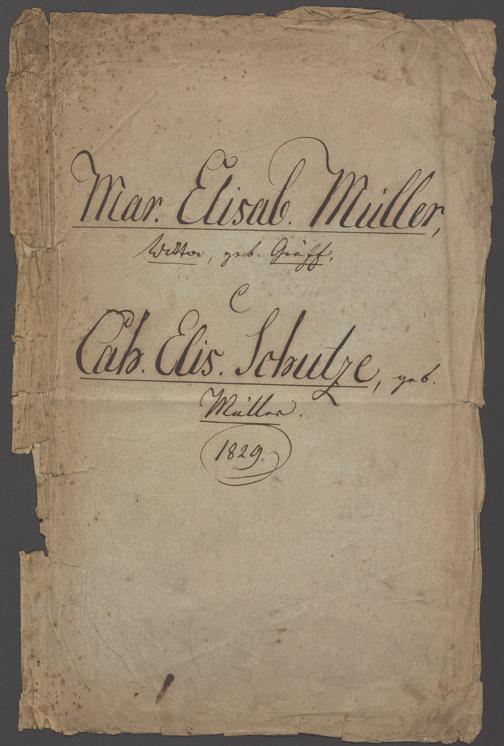 Mar. Elisab. Müller,
Wittwe, geb. Gräff.
C
Cath. Elis. Schutze, geb.
Müller.
1829.